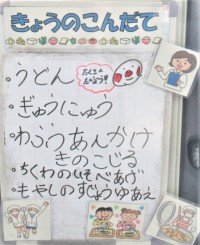 きょうのこんだて
・うどん
たくさん
たべよう!!
・ぎゅうにゅう
・わふうあんかけ
きのこじる
・ちくわのいそべあげ
・もやしのすじょうゆあえ